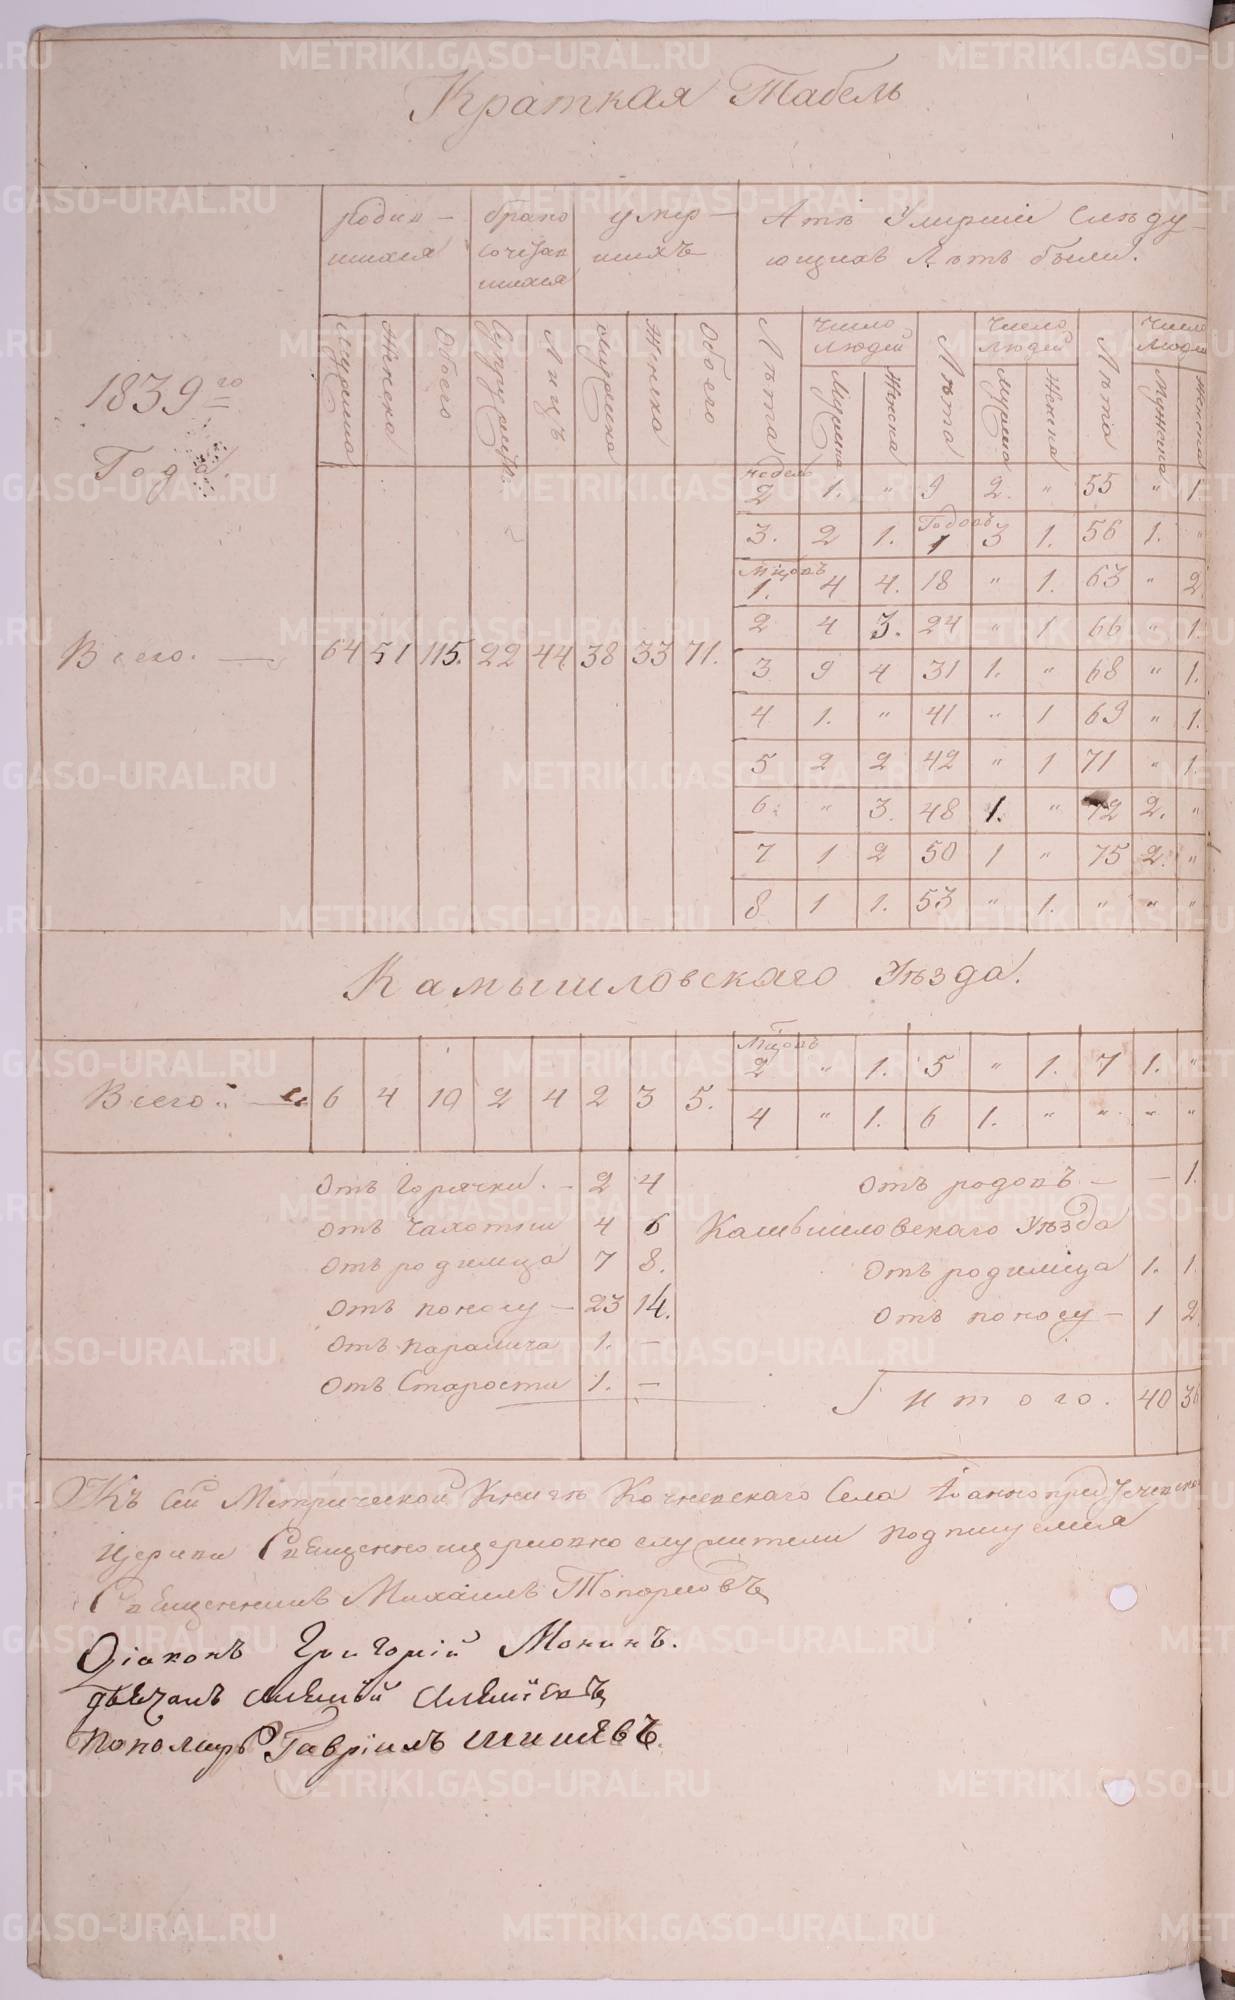 Краткая Табель
родив- брако умер- А тѣ Умершіи Слѣду
шихся сочетав шихъ ющихъ Лѣтъ были.
шихся
Мужеска Женска Обоего Супружествъ Лицъ Мужеска Женска Обоего Лѣта Число людей Лѣта Число людей Лѣта Число людей
Мужеска Женска Мужеска Женска Мужеска Женска
1839го
Года.
Недель
2 1. " 9 2. " 55 " 1.
Годовъ
3. 2 1. 1 3 1. 56 1. "
Мцовъ
1. 4 4. 18 " 1. 63 " 2
2 4 3. 24 " 1 66 " 1.
Всего. — 64 51 115. 22 44 38 33 71.
3 9 4 31 1. " 68 " 1.
4 1. " 41 " 1 69 " 1.
5 2 2 42 " 1 71 " 1.
6. " 3. 48 1. " 72 2. "
7 1 2 50 1 " 75 2. "
8 1 1. 53 " 1. " " "
Камышловскаго Уѣзда.
Мцовъ
2 " 1. 5 " 1. 7 1. "
Всего. — 6 4 10 2 4 2 3 5.
4 " 1. 6 1. " " " "
Отъ горячки. — 2 4 Отъ родовъ — — 1.
Отъ чахотки 4 6 Камышловскаго Уѣзда
Отъ родимца 7 8. Отъ родимца 1. 1.
Отъ поносу — 23 14. Отъ поносу — 1 2
Отъ паралича 1. —
Отъ Старости 1. — Итого. 40 36
Къ сей Метрической Книгѣ Кочневскаго Села Іоаннопредтечевской
Церкви Священноцерковнослужители подписуемся
Священникъ Михаилъ Топорковъ
Діаконъ Григорій Монинъ.
Дьячекъ Алексѣй
Пономарь Гавріилъ Шишевъ.
METRIKI.GASO-URAL.RU